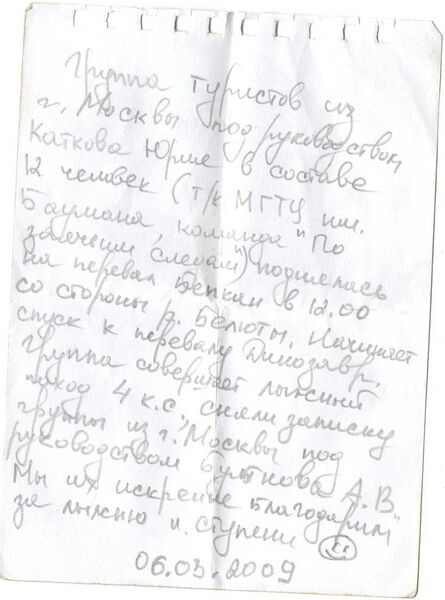 Группа туристов из
г. Москвы под руководством
Каткова Юрие в составе
12 человек (т/к МГТУ им.
Баумана, команда "По
заячьим следам") поднялась
на перевал Бепкан в 12.00
со стороны р. Белюты. Начинает
спуск к перевалу Динозавр.
Группа совершает лыжный
поход 4 к.с., сняли записку
группы из г. Москвы под
руководством А.В.
Мы их искренне благодарим
за лыжню и ступени
06.03.2009